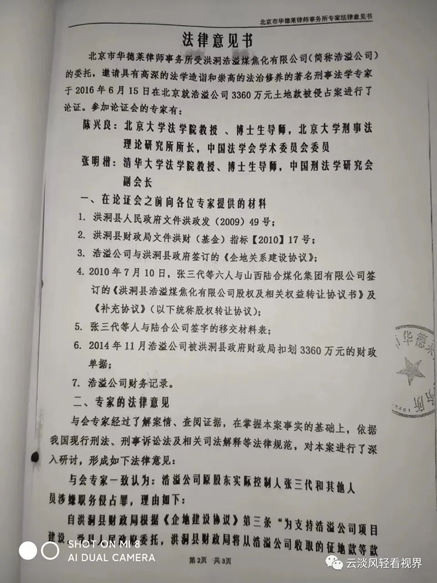 北京市华德莱律师事务所专家法律意见书
法律意见书
北京市华德莱律师事务所受洪洞浩溢煤焦化有限公司(简称浩溢公司)
的委托，邀请具有高深的法学造诣和崇高的法治修养的著名刑事法学专家
于 2016 年 6 月 15 日在北京就浩溢公司 3360 万元土地款被侵占案进行了
论证。参加论证会的专家有：
陈兴良：北京大学法学院教授 、博士生导师，北京大学刑事法
理论研究所所长，中国法学会学术委员会委员
张明楷：清华大学法学院教授、博士生导师，中国刑法学研究会
副会长
一、在论证会之前向各位专家提供的材料
1. 洪洞县人民政府文件洪政发（2009）49 号；
2. 洪洞县财政局文件洪财（基金）指标【2010】17 号；
3. 浩溢公司与洪洞县政府签订的《企地关系建设协议》；
4. 2010 年 7 月 10 日，张三代等六人与山西陆合煤化集团有限公司签
订的《洪洞县浩溢煤焦化有限公司股权及相关权益转让协议书》及
《补充协议》（以下统称股权转让协议）；
5. 张三代等人与陆合公司签字的移交材料表；
6. 2014 年 11 月浩溢公司被洪洞县政府财政局扣划 3360 万元的财政
单据；
7. 浩溢公司财务记录。
二、专家的法律意见
与会专家经过了解案情、查阅证据，在掌握本案事实的基础上，依据
我国现行刑法、刑事诉讼法及相关司法解释等法律规范，对本案进行了深
入研讨，形成如下法律意见：
与会专家一致认为：浩溢公司原股东实际控制人张三代和其他人
员涉嫌职务侵占罪，理由如下：
自洪洞县财政局根据《企地建设协议》第三条“为支持浩溢公司项目
建设，受县人民政府委托，洪洞县财政局将从浩溢公司收取的征地款等款
第 2 页 共 3 页
SHOT ON MI 8
AI DUAL CAMERA
云淡风轻看视界